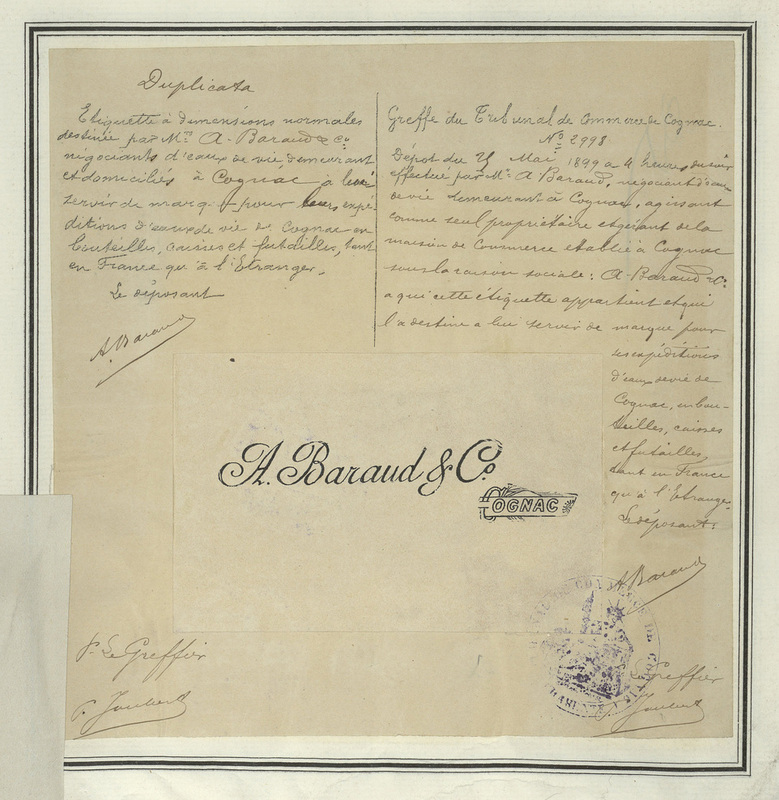 Duplicata
Etiquette à dimensions normales
destinée par Mrs A. Baraud & Co
négociants d'eaux de vie demeurant
et domiciliés à Cognac à leur
servir de marque pour leurs expé-
ditions d'eaux de vie de Cognac en
bouteilles, caisses et futailles, tant
en France qu'à l'Etranger.
Le déposant
A. Baraud
Greffe du Tribunal de Commerce de Cognac.
No 2998
Dépôt du 25 Mai 1899 à 4 heures du soir
effectué par Mr A Baraud, négociant d'eaux
de vie demeurant à Cognac, agissant
comme seul propriétaire et gérant de la
maison de Commerce etablie à Cognac
sous la raison sociale: A. Baraud & Co
a qui cette étiquette appartient et qui
l'a destine a lui servir de marque pour
ses expéditions
d'eaux de vie de
Cognac, en bou-
teilles, caisses
et futailles,
tant en France
qu'à l'Etranger.
Le déposant:
A. Baraud
A. Baraud & Co
COGNAC
P. Le Greffier
P. Joubert
Le Greffier
Joubert